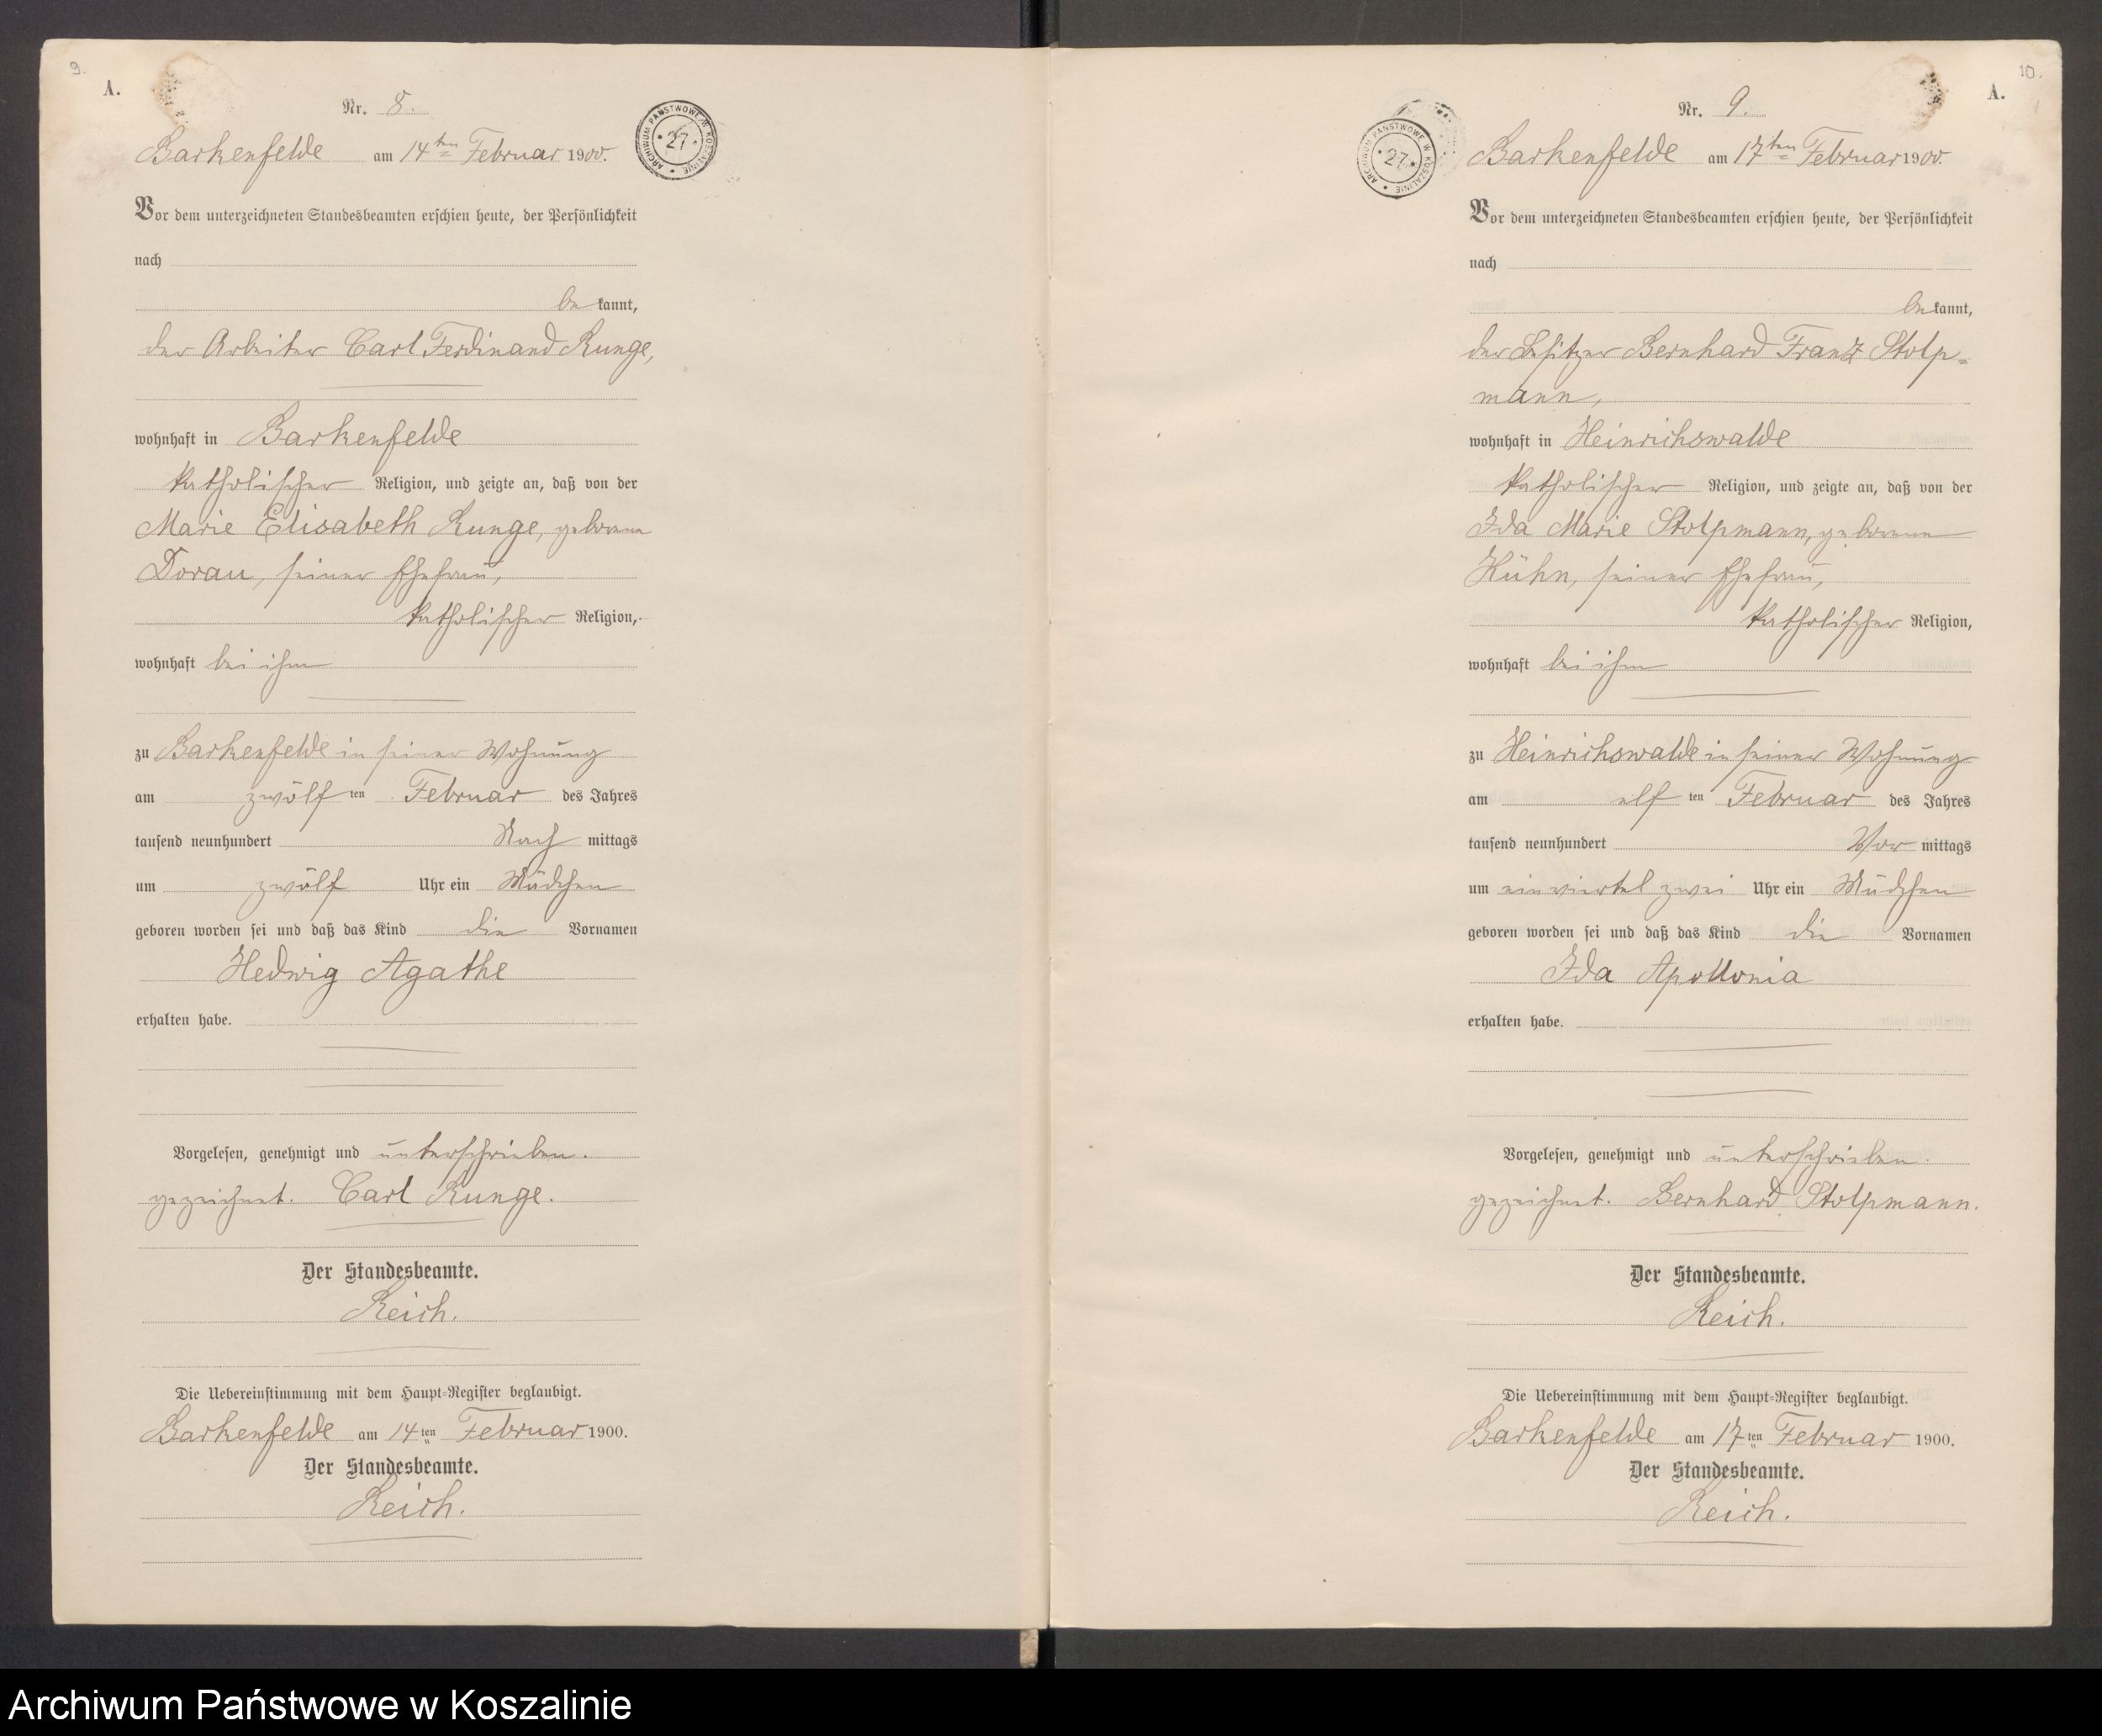 9.
A.
Nr. 8.
ARCHIWUM PAŃSTWOWE W KOSZALINIE
27
Barkenfelde am 14ten Februar 1900.
Vor dem unterzeichneten Standesbeamten erschien heute, der Persönlichkeit
nach
bekannt,
der Arbeiter Carl Ferdinand Runge,
wohnhaft in Barkenfelde
katholischer Religion, und zeigte an, daß von der
Marie Elisabeth Runge, geborene
Dorau, seiner Ehefrau,
katholischer Religion,
wohnhaft bei ihm
zu Barkenfelde in seiner Wohnung
am zwölf ten Februar des Jahres
tausend neunhundert Nach mittags
um zwölf Uhr ein Mädchen
geboren worden sei und daß das Kind die Vornamen
Hedwig Agathe
erhalten habe.
Vorgelesen, genehmigt und unterschrieben.
gezeichnet. Carl Runge.
Der Standesbeamte.
Reich.
Die Uebereinstimmung mit dem Haupt-Register beglaubigt.
Barkenfelde am 14ten Februar 1900.
Der Standesbeamte.
Reich.
10.
A.
Nr. 9.
ARCHIWUM PAŃSTWOWE W KOSZALINIE
27
Barkenfelde am 17ten Februar 1900.
Vor dem unterzeichneten Standesbeamten erschien heute, der Persönlichkeit
nach
bekannt,
der Besitzer Bernhard Franz Stolp-
mann,
wohnhaft in Heinrichswalde
katholischer Religion, und zeigte an, daß von der
Ida Marie Stolpmann, geborene
Kühn, seiner Ehefrau,
katholischer Religion,
wohnhaft bei ihm
zu Heinrichswalde in seiner Wohnung
am elf ten Februar des Jahres
tausend neunhundert Vor mittags
um ein viertel zwei Uhr ein Mädchen
geboren worden sei und daß das Kind die Vornamen
Ida Apollonia
erhalten habe.
Vorgelesen, genehmigt und unterschrieben.
gezeichnet. Bernhard Stolpmann.
Der Standesbeamte.
Reich.
Die Uebereinstimmung mit dem Haupt-Register beglaubigt.
Barkenfelde am 17ten Februar 1900.
Der Standesbeamte.
Reich.
Archiwum Państwowe w Koszalinie